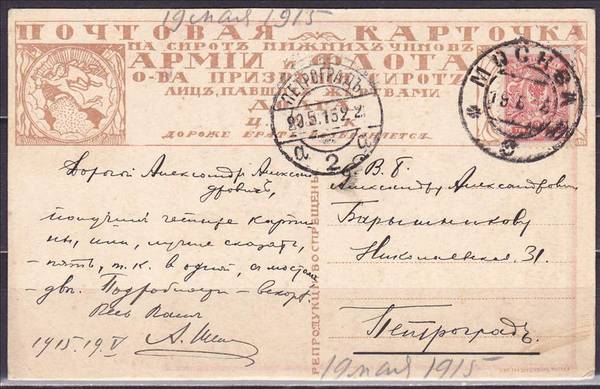 19 мая 1915
ПОЧТОВАЯ КАРТОЧКА
НА СИРОТЪ НИЖНИХЪ ЧИНОВЪ
АРМІИ И ФЛОТА
О-ВА ПРИЗ
ЛИЦЪ, ПАВШ
ДОРОЖЕ
МОСКВА
ПЕТРОГРАДЪ
29.5.15
2
Дорогой Александръ Алексан-
дровичъ,
получилъ четыре карти-
ны, или, лучше сказать,
пять, т.к. в одной, а местам
две. Подробности - вскорѣ.
Весь Вашъ
1915.19.V
В. Б.
Александру Александровичу
Барышникову
Николаевская 31.
Петроградъ
РЕПРОДУКЦІИ ВОСПРЕЩЕНЫ
19 мая 1915